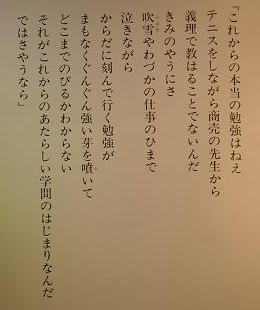 「これからの本当の勉強はねえ
テニスをしながら商売の先生から
義理で教はることでないんだ
きみのやうにさ
吹雪やわづかの仕事のひまで
泣きながら
からだに刻んで行く勉強が
まもなくぐんぐん強い芽を噴いて
どこまでのびるかわからない
それがこれからのあたらしい学問のはじまりなんだ
ではさやうなら」